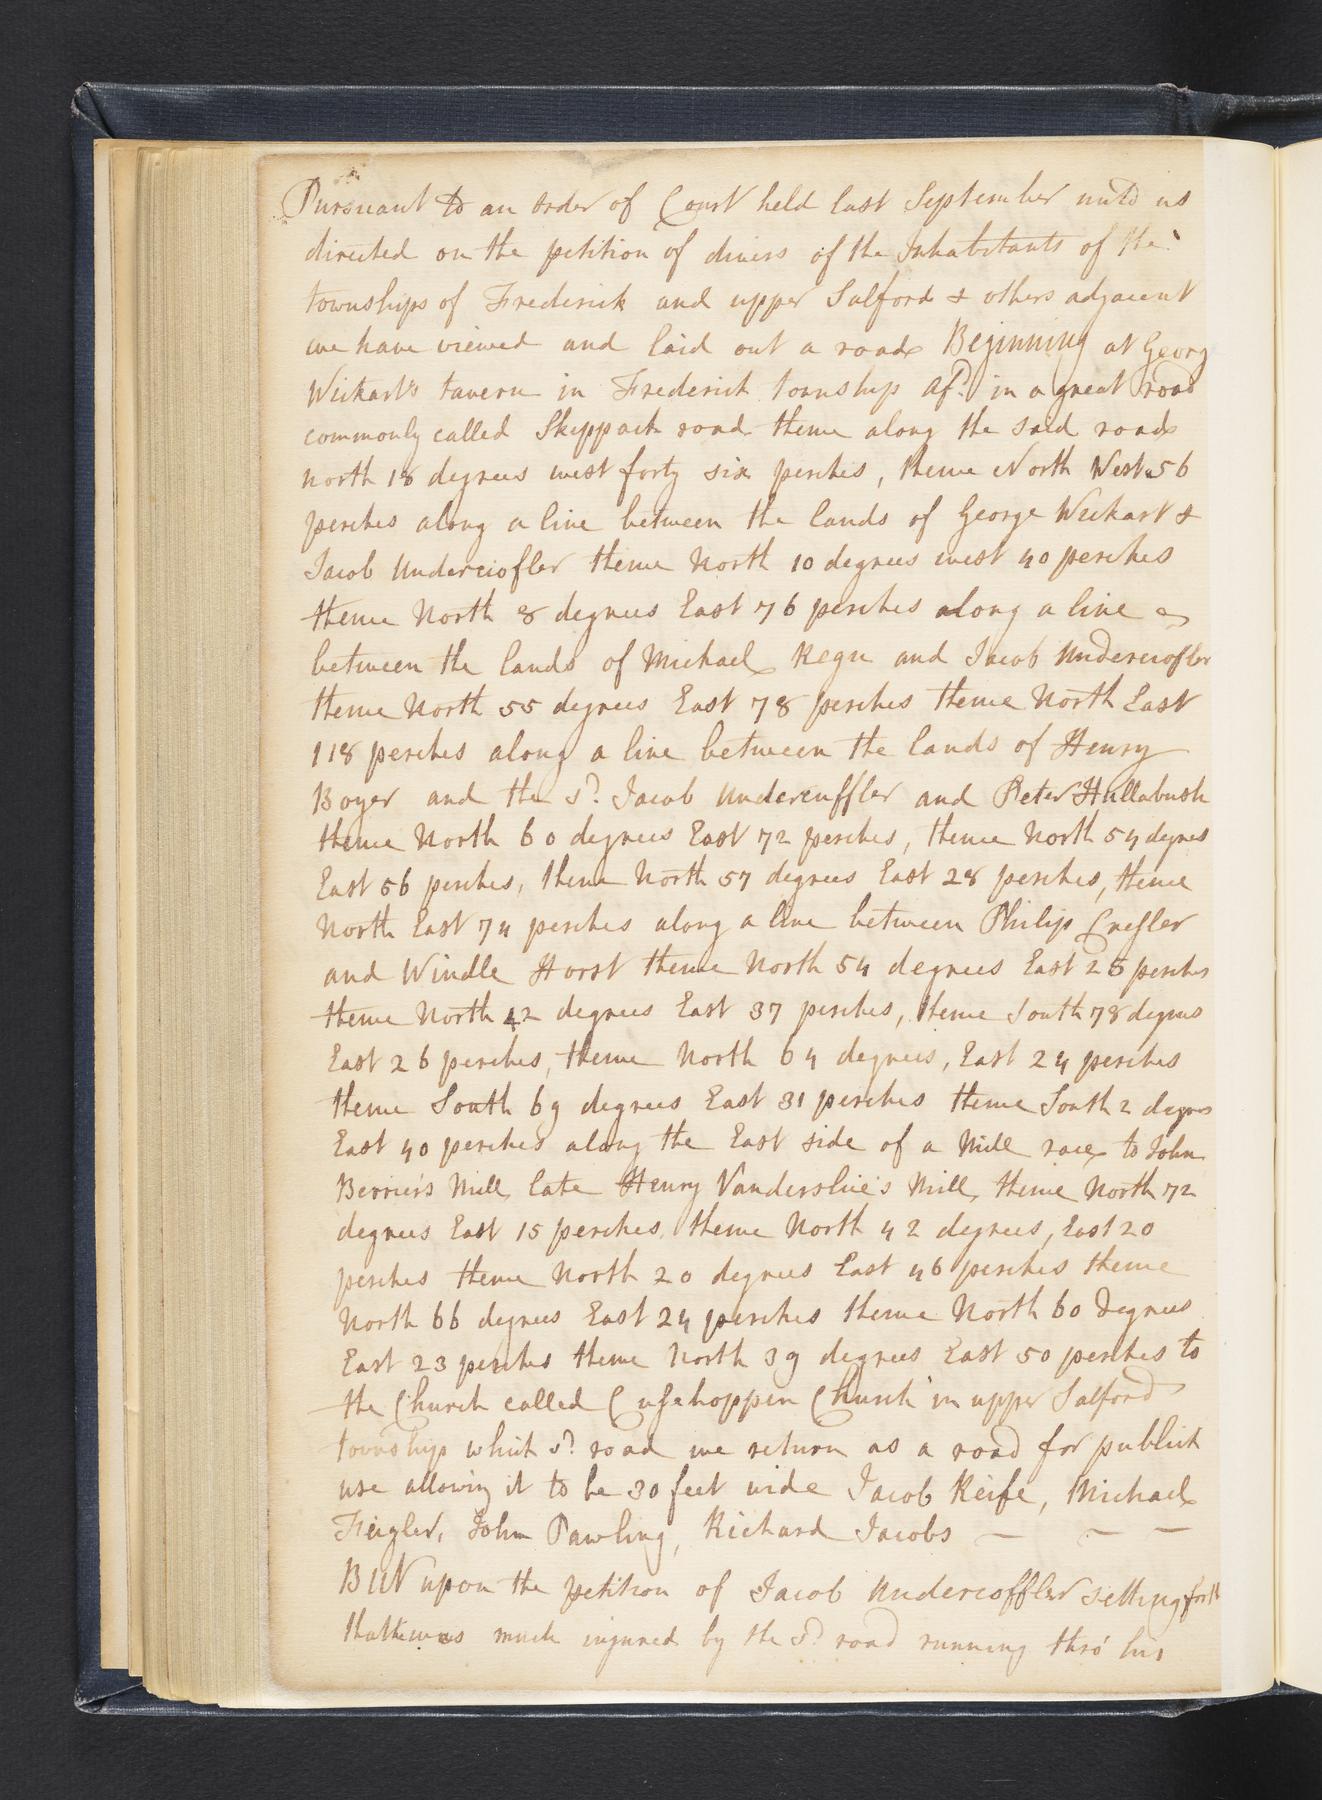 Pursuant to an order of Court held last September unto us
directed on the petition of divers of the Inhabitants of the
townships of Frederick and upper Salford & others adjacent
we have viewed and laid out a road Beginning at Georg
Weikart's tavern in Frederick township afd. in a great road
commonly called Skippack road thence along the said road
north 18 degrees west forty six perches, thence North West 56
perches along a line between the lands of George Weikart &
Jacob Underciofler thence North 10 degrees west 40 perches
thence North 8 degrees East 76 perches along a line
between the lands of Michael Kegu and Jacob Underciofler
thence North 55 degrees East 78 perches thence North East
118 perches along a line between the lands of Henry
Boyer and the sd. Jacob Undercuffler and Peter Hullabush
thence North 60 degrees East 72 perches, thence North 54 degrees
East 56 perches, thence North 57 degrees East 28 perches, thence
North East 74 perches along a line between Philip Cresler
and Windle Horst thence North 54 degrees East 25 perches
thence North 42 degrees East 37 perches, thence South 78 degrees
East 26 perches, thence North 64 degrees, East 24 perches
thence South 69 degrees East 31 perches thence South 2 degres
East 40 perches along the East side of a Mill race to John
Berrier's Mill, late Henry Vanderslue's Mill, thence North 72
degrees East 15 perches, thence North 42 degrees, East 20
perches thence North 20 degrees East 46 perches thence
North 66 degrees East 24 perches thence North 60 Degrees
East 23 perches thence North 39 degrees East 50 perches to
the Church called Cusehoppen Church in upper Salford
township which sd. road we return as a road for publick
use allowing it to be 30 feet wide Jacob Reife, Michael
Zeigler, John Pawling, Richard Jacobs — — —
BUT upon the petition of Jacob Undercoffler setting forth
that he was much injured by the sd. road running thro' his